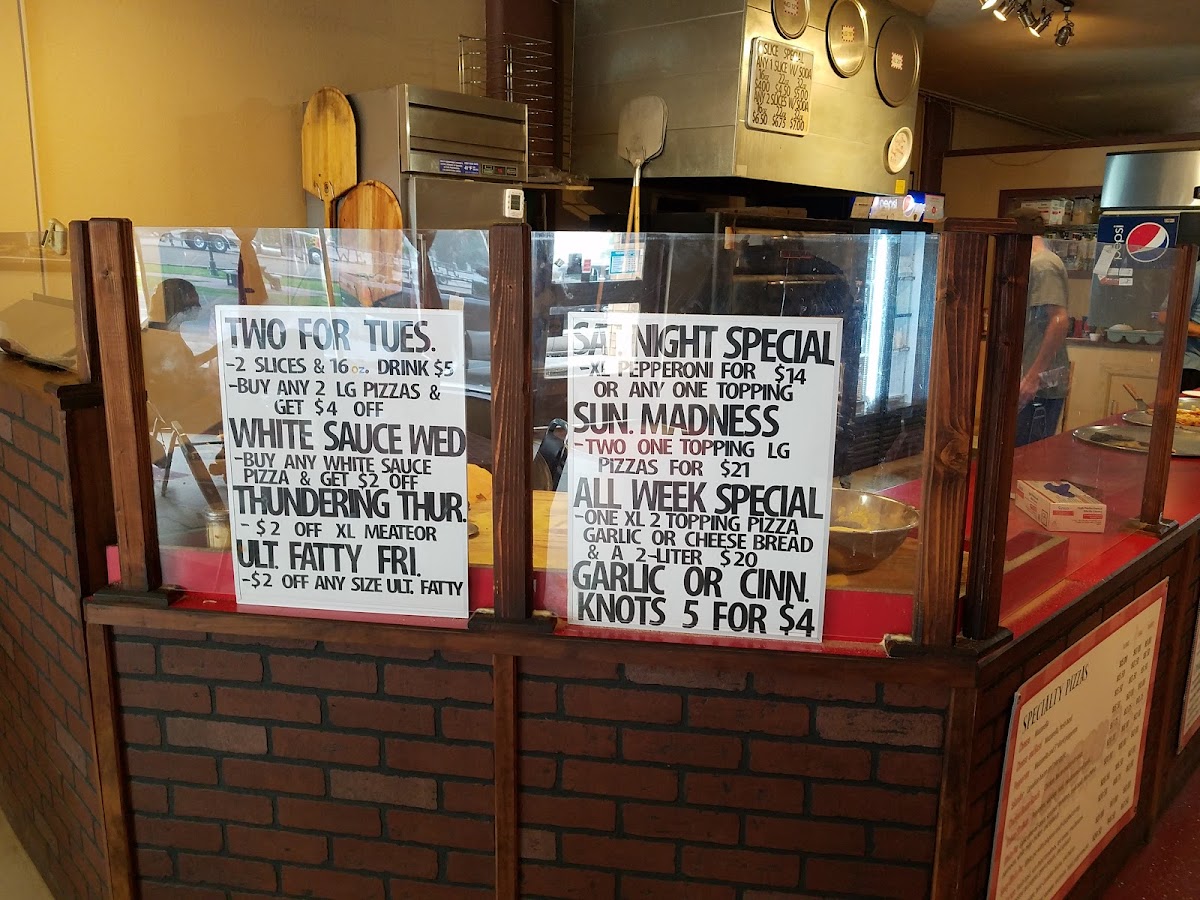 SLICE SPECIAL
ANY 1 SLICE W/ SODA
16oz 22oz 32oz
$4.00 $4.50 $5.00
ANY 2 SLICES W/ SODA
$6.50 $6.75 $7.00
pepsi
pepsi
TWO FOR TUES.
-2 SLICES & 16 oz. DRINK $5
-BUY ANY 2 LG PIZZAS &
GET $4 OFF
WHITE SAUCE WED
-BUY ANY WHITE SAUCE
PIZZA & GET $2 OFF
THUNDERING THUR.
- $2 OFF XL MEATEOR
ULT. FATTY FRI.
-$2 OFF ANY SIZE ULT. FATTY
SAT. NIGHT SPECIAL
-XL PEPPERONI FOR $14
OR ANY ONE TOPPING
SUN. MADNESS
-TWO ONE TOPPING LG
PIZZAS FOR $21
ALL WEEK SPECIAL
-ONE XL 2 TOPPING PIZZA
GARLIC OR CHEESE BREAD
& A 2-LITER $20
GARLIC OR CINN.
KNOTS 5 FOR $4
SPECIALTY PIZZAS